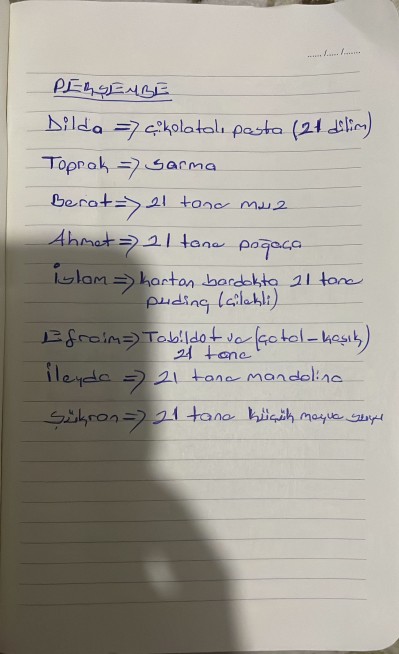 ...../...../.......
PERŞEMBE
Dilda => çikolatalı pasta (21 dilim)
Toprak => sarma
Berat => 21 tane muz
Ahmet => 21 tane poğaça
İslam => karton bardakta 21 tane
puding (çilekli)
Efraim => Tabildot ve (çatal - kaşık)
21 tane
İleyda => 21 tane mandalina
Şükran => 21 tane küçük meyve suyu